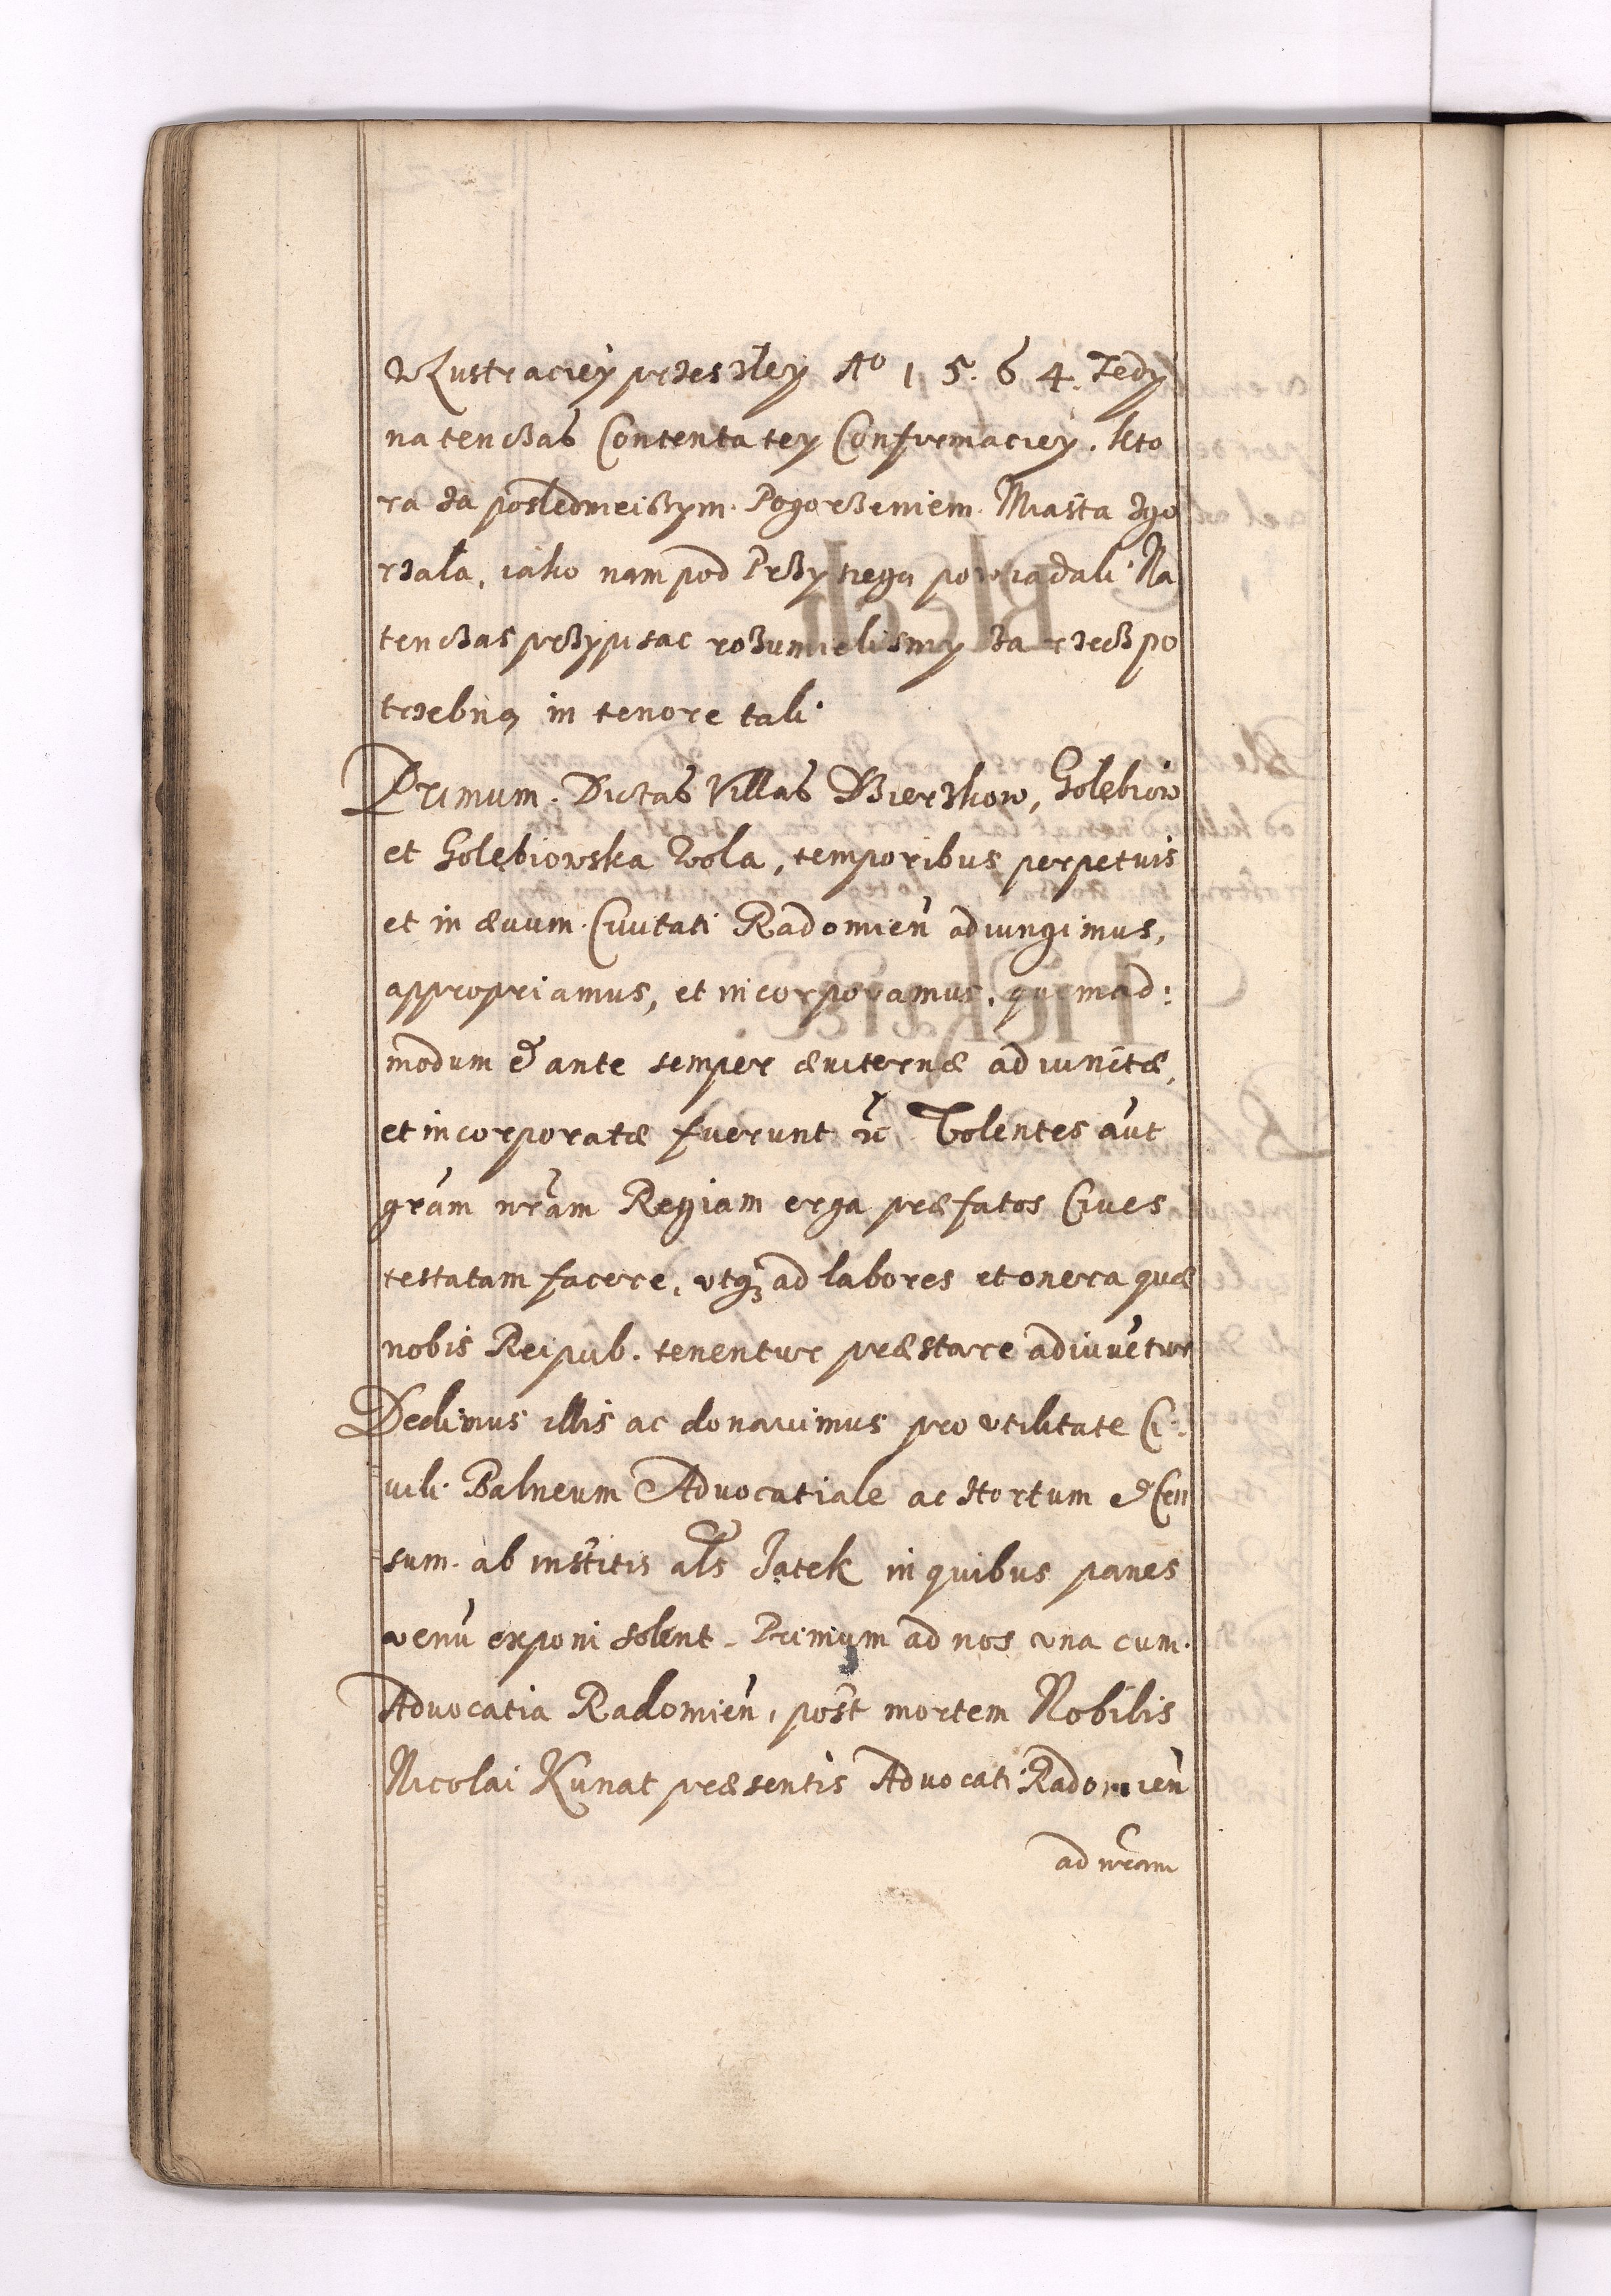 w Lustraciey przeszłey Aº 1 5. 6 4. Tedy
na tenczas Contenta tey Confirmaciey. kto
ra za posledmeiszym. Pogorzeniem. Miasta zgo
rzała, iako nam pod Przysięgą powiadali. Na
tenczas przypisac rozumielismy za rzecz po
trzebną in tenore tali.
Primum. Dictas Villas Bierzkow, Gołębiow
et Gołębiowska Wola, temporibus perpetuis
et in ævum. Civitati Radomień adiungimus,
appropriamus, et incorporamus, quemad:
modum & ante semper æviternæ adiunctæ,
et incorporatæ fuerunt Volentes aut
gram nram Regiam erga præfatos Cives
testatam facere, vtqȝ ad labores et onera quæ
nobis Reipub. tenentur præstare adiuvetur
Dedimus illis ac donavimus pro vtilitate Ci:
vili. Balneum Advocatiale ac Hortum & Cen
sum. ab institis als Jatek in quibus panes
venu exponi solent. Primum ad nos vna cum.
Advocatia Radomień, post mortem Nobilis
Nicolai Kunat præsentis Advocati Radomień
ad nram